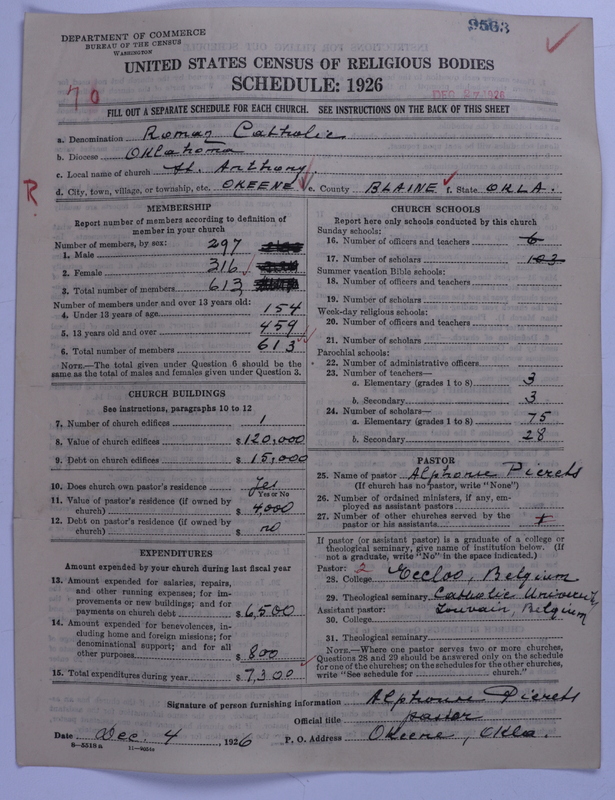 DEPARTMENT OF COMMERCE
BUREAU OF THE CENSUS
WASHINGTON
9563
UNITED STATES CENSUS OF RELIGIOUS BODIES
SCHEDULE: 1926
70
DEC 27 1926
FILL OUT A SEPARATE SCHEDULE FOR EACH CHURCH. SEE INSTRUCTIONS ON THE BACK OF THIS SHEET
a. Denomination Roman Catholic
b. Diocese Oklahoma
c. Local name of church St. Anthony
d. City, town, village, or township, etc. OKEENE e. County BLAINE f. State OKLA.
R
MEMBERSHIP
Report number of members according to definition of
member in your church
Number of members, by sex:
1. Male 297
2. Female 316
3. Total number of members 613
Number of members under and over 13 years old:
4. Under 13 years of age 154
5. 13 years old and over 459
6. Total number of members 613
NOTE.—The total given under Question 6 should be
same as the total of males and females given under Question 3.
CHURCH BUILDINGS
See instructions, paragraphs 10 to 12
7. Number of church edifices 1
8. Value of church edifices $ 120,000
9. Debt on church edifices $ 15,000
10. Does church own pastor's residence Yes
Yes or No
11. Value of pastor's residence (if owned by
church) $ 4000
12. Debt on pastor's residence (if owned by
church) $ no
EXPENDITURES
Amount expended by your church during last fiscal year
13. Amount expended for salaries, repairs,
and other running expenses; for im-
provements or new buildings; and for
payments on church debt $ 6,500
14. Amount expended for benevolences, in-
cluding home and foreign missions; for
denominational support; and for all
other purposes $ 800
15. Total expenditures during year $ 7,300
CHURCH SCHOOLS
Report here only schools conducted by this church
Sunday schools:
16. Number of officers and teachers 6
17. Number of scholars 103
Summer vacation Bible schools:
18. Number of officers and teachers
19. Number of scholars
Week-day religious schools:
20. Number of officers and teachers
21. Number of scholars
Parochial schools:
22. Number of administrative officers
23. Number of teachers—
a. Elementary (grades 1 to 8) 3
b. Secondary 3
24. Number of scholars—
a. Elementary (grades 1 to 8) 75
b. Secondary 28
PASTOR
25. Name of pastor Alphonse Pierets
(If church has no pastor, write "None")
26. Number of ordained ministers, if any, em-
ployed as assistant pastors
27. Number of other churches served by the
pastor or his assistants
If pastor (or assistant pastor) is a graduate of a college or
theological seminary, give name of institution below. (If
not a graduate, write "No" in the space indicated.)
Pastor: 2
28. College Eecloo, Belgium
29. Theological seminary Catholic University
Assistant pastor: Louvain, Belgium
30. College
31. Theological seminary
NOTE.—Where one pastor serves two or more churches,
Questions 28 and 29 should be answered only on the schedule
for one of the churches; on the schedules for the other churches,
write "See schedule for church."
Signature of person furnishing information Alphonse Pierets
Official title pastor
Date Dec. 4, 1926 P. O. Address Okeene, Okla.
8—5518a 11—9051a